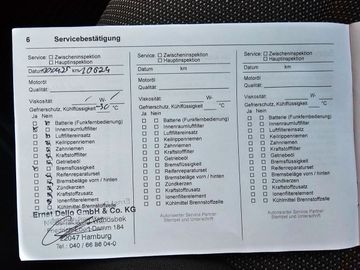 6 Servicebestätigung
Service: Zwischeninspektion
Hauptinspektion
Datum km
Motoröl
Qualität:
Viskosität W-
Gefrierschutz, Kühlflüssigkeit -30 °C
Ja Nein
Batterie (Funkfernbedienung)
Innenraumluftfilter
Luftfiltereinsatz
Keilrippenriemen
Zahnriemen
Kraftstofffilter
Getriebeöl
Bremsflüssigkeit
Reifenreparaturset
Bremsbeläge vorn / hinten
Zündkerzen
Kraftstoffzusatz
Ionenfilterelement
Kühlmittel Brennstoffzelle
Ernst Dello GmbH & Co. KG
Friedrich-Ebert-Damm 184
22047 Hamburg
Tel.: 040 / 66 88 04-0
Service: Zwischeninspektion
Hauptinspektion
Datum km
Motoröl
Qualität:
Viskosität W-
Gefrierschutz, Kühlflüssigkeit °C
Ja Nein
Batterie (Funkfernbedienung)
Innenraumluftfilter
Luftfiltereinsatz
Keilrippenriemen
Zahnriemen
Kraftstofffilter
Getriebeöl
Bremsflüssigkeit
Reifenreparaturset
Bremsbeläge vorn / hinten
Zündkerzen
Kraftstoffzusatz
Ionenfilterelement
Kühlmittel Brennstoffzelle
Autorisierter Service Partner
Stempel und Unterschrift
Service: Zwischeninspektion
Hauptinspektion
Datum km
Motoröl
Qualität:
Viskosität W-
Gefrierschutz, Kühlflüssigkeit °C
Ja Nein
Batterie (Funkfernbedienung)
Innenraumluftfilter
Luftfiltereinsatz
Keilrippenriemen
Zahnriemen
Kraftstofffilter
Getriebeöl
Bremsflüssigkeit
Reifenreparaturset
Bremsbeläge vorn / hinten
Zündkerzen
Kraftstoffzusatz
Ionenfilterelement
Kühlmittel Brennstoffzelle
Autorisierter Service Partner
Stempel und Unterschrift